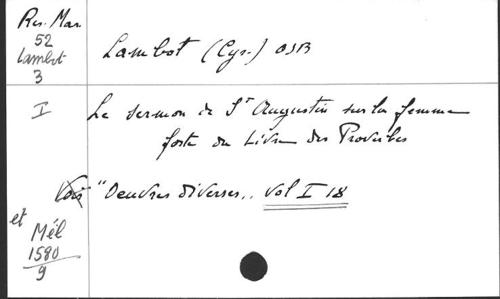 Res. Mar.
52
Lambot
3
Lambot (Cyr.) OSB
I
Le sermon de St Augustin sur la femme
forte du Livre des Proverbes
Voir "Oeuvres diverses,, vol I 18
et
Mél
1580
9